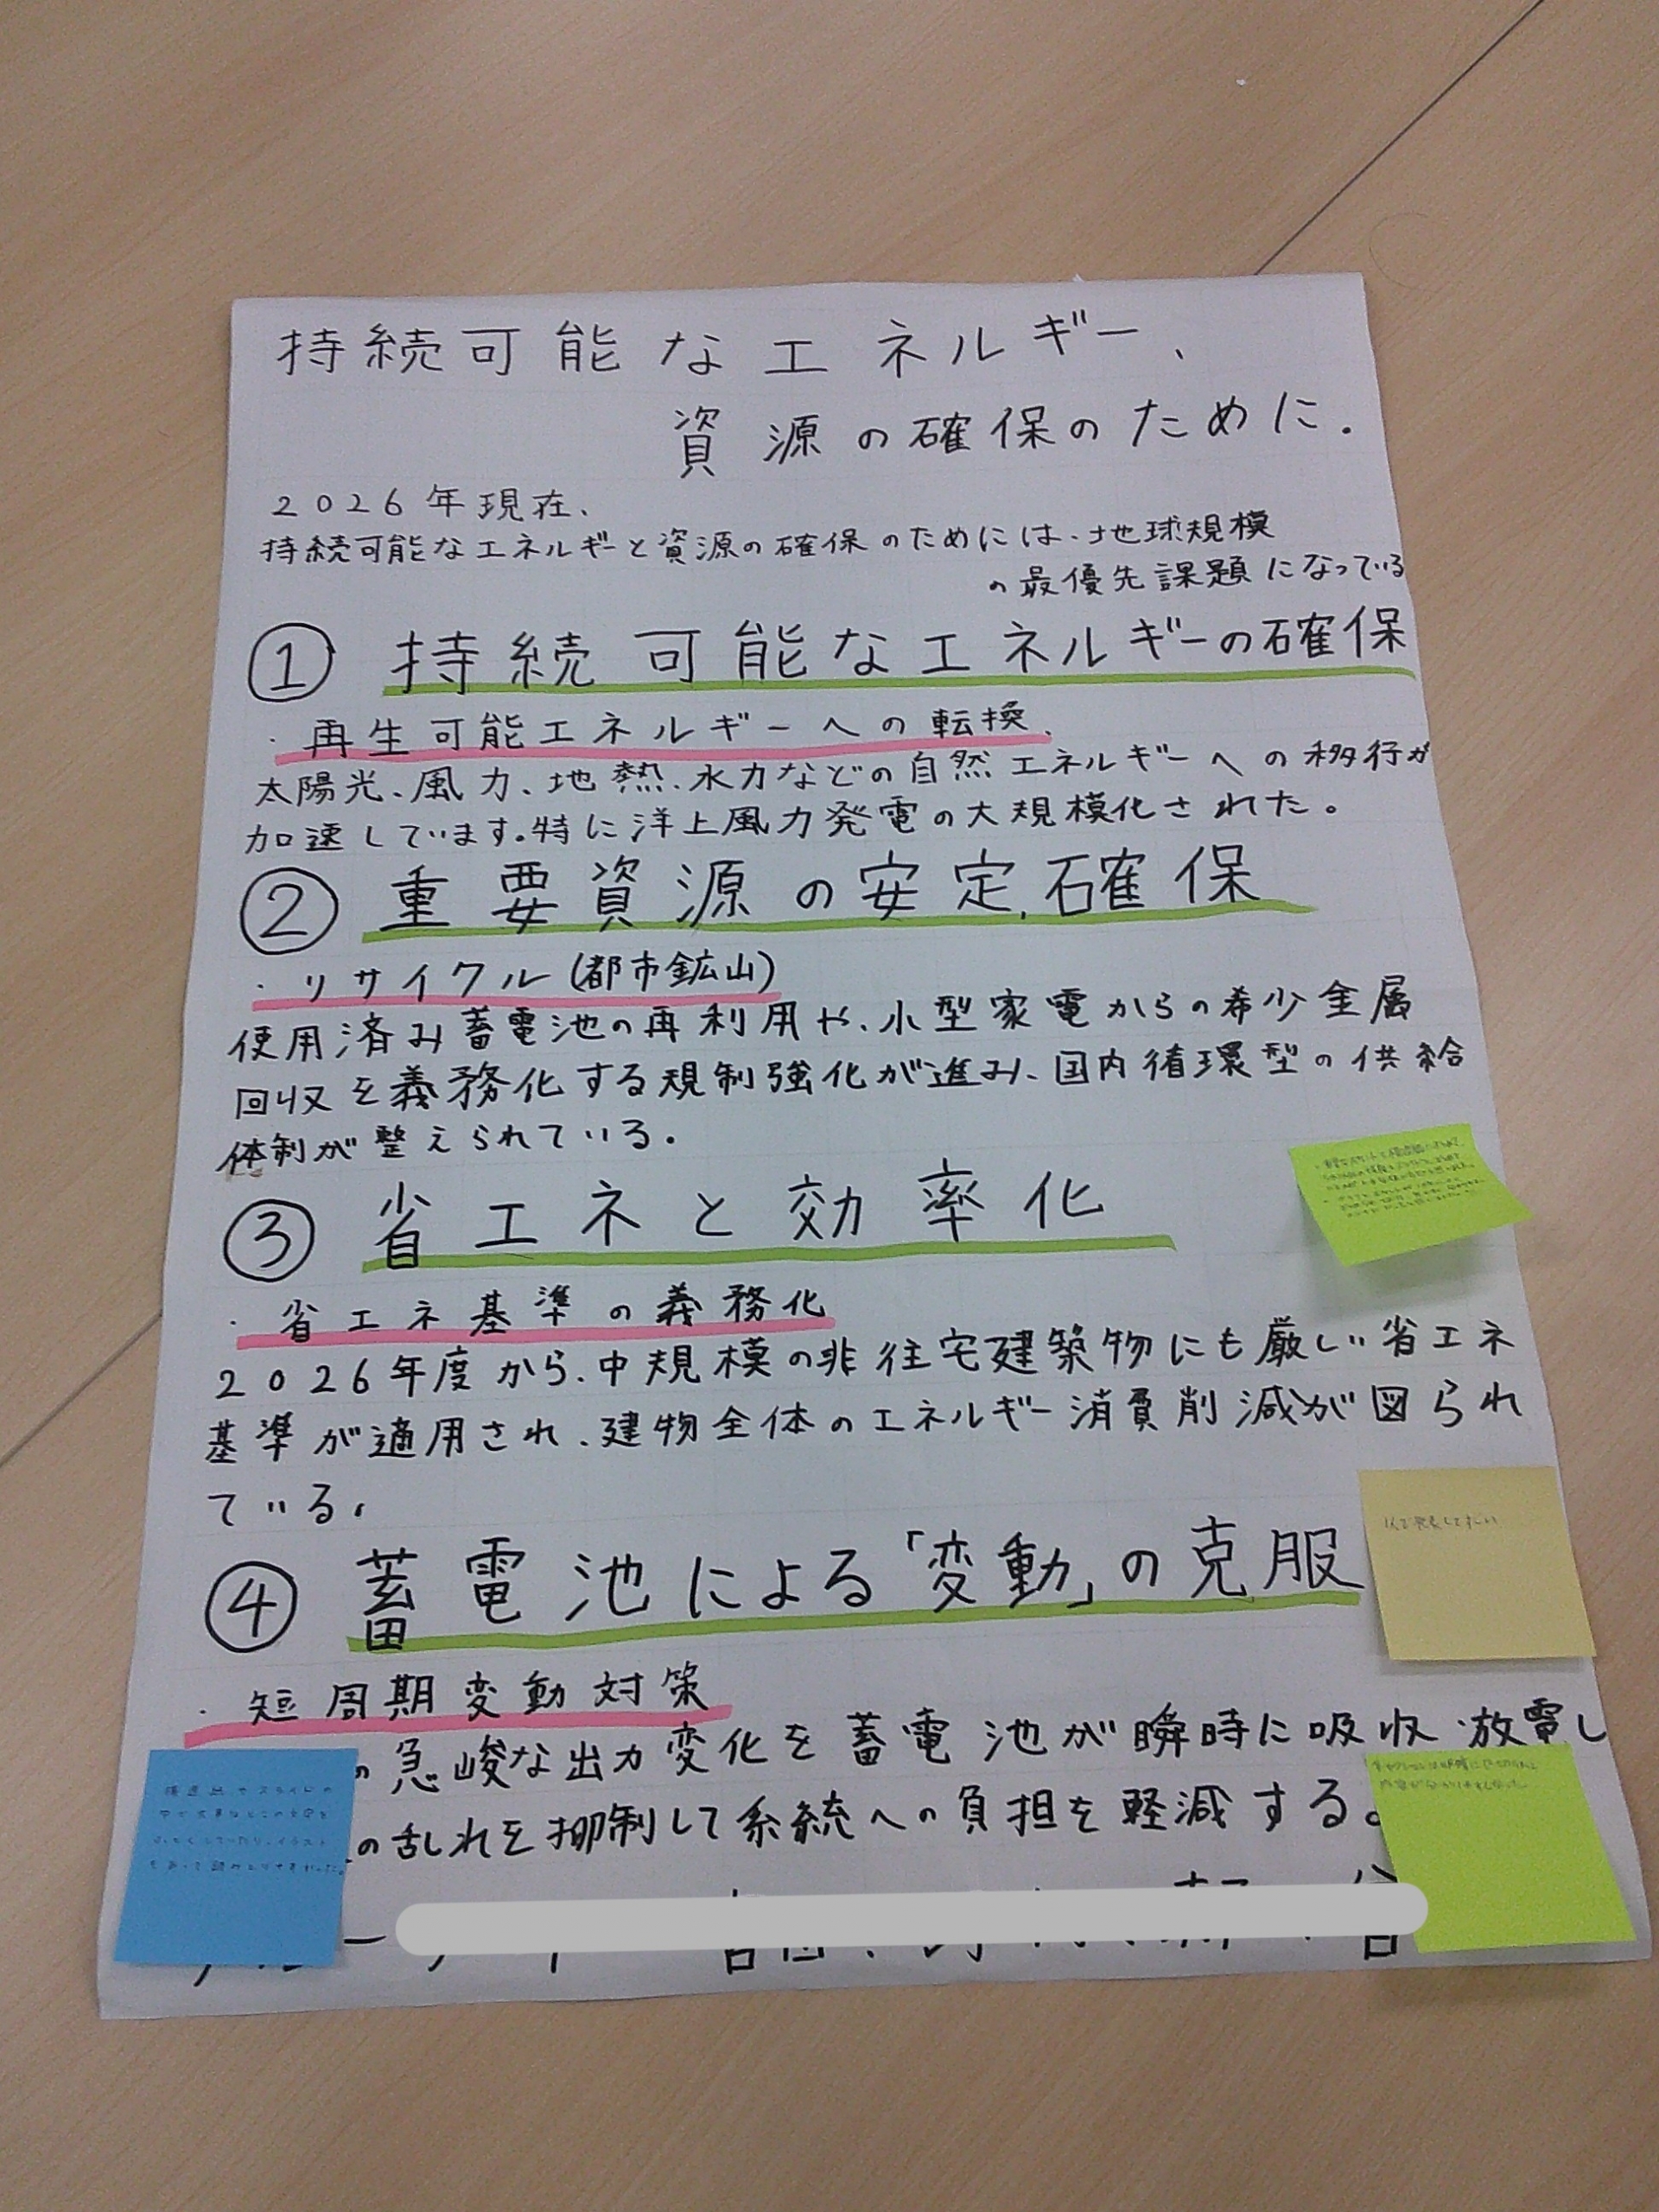 持続可能なエネルギー、
資源の確保のために.
2026年現在、
持続可能なエネルギーと資源の確保のためには、地球規模
の最優先課題になっている
① 持続可能なエネルギーの確保
・再生可能エネルギーへの転換、
太陽光、風力、地熱、水力などの自然エネルギーへの移行が
加速しています。特に洋上風力発電の大規模化された。
② 重要資源の安定確保
・リサイクル(都市鉱山)
使用済み蓄電池の再利用や、小型家電からの希少金属
回収を義務化する規制強化が進み、国内循環型の供給
体制が整えられている.
③ 省エネと効率化
・省エネ基準の義務化
2026年度から、中規模の非住宅建築物にも厳しい省エネ
基準が適用され、建物全体のエネルギー消費削減が図られ
ている.
④ 蓄電池による「変動」の克服
・短周期変動対策
の急峻な出力変化を蓄電池が瞬時に吸収・放電し
の乱れを抑制して系統への負担を軽減する。